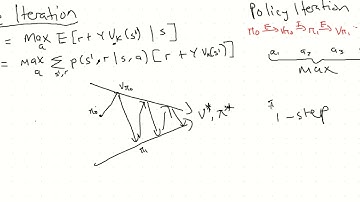 Iteration
= max_a E[r + γ V_k(s') | s]
= max_a Σ_{s',r} p(s', r | s, a) [r + γ V_k(s')]
Policy Iteration
π₀ →E V_π₀ →I π₁ →E V
a₁ a₂ a₃
max
V_π₀
π₀
V*, π*
π₁
1-step